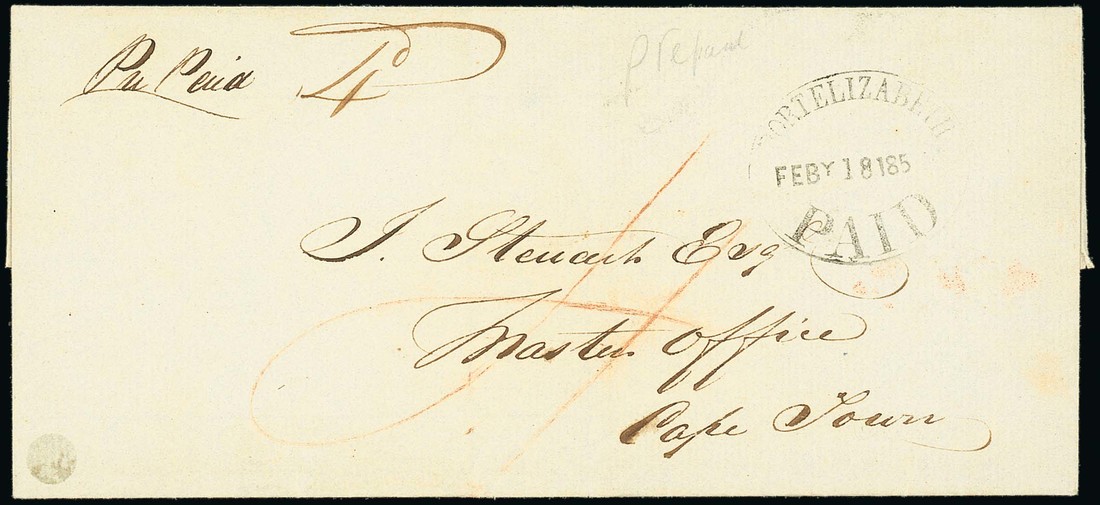 Pre Paid 4d
Prepaid
PORT ELIZABETH
FEBY 18 185
PAID
J. Steuart Esq
Masters Office
Cape Town
4